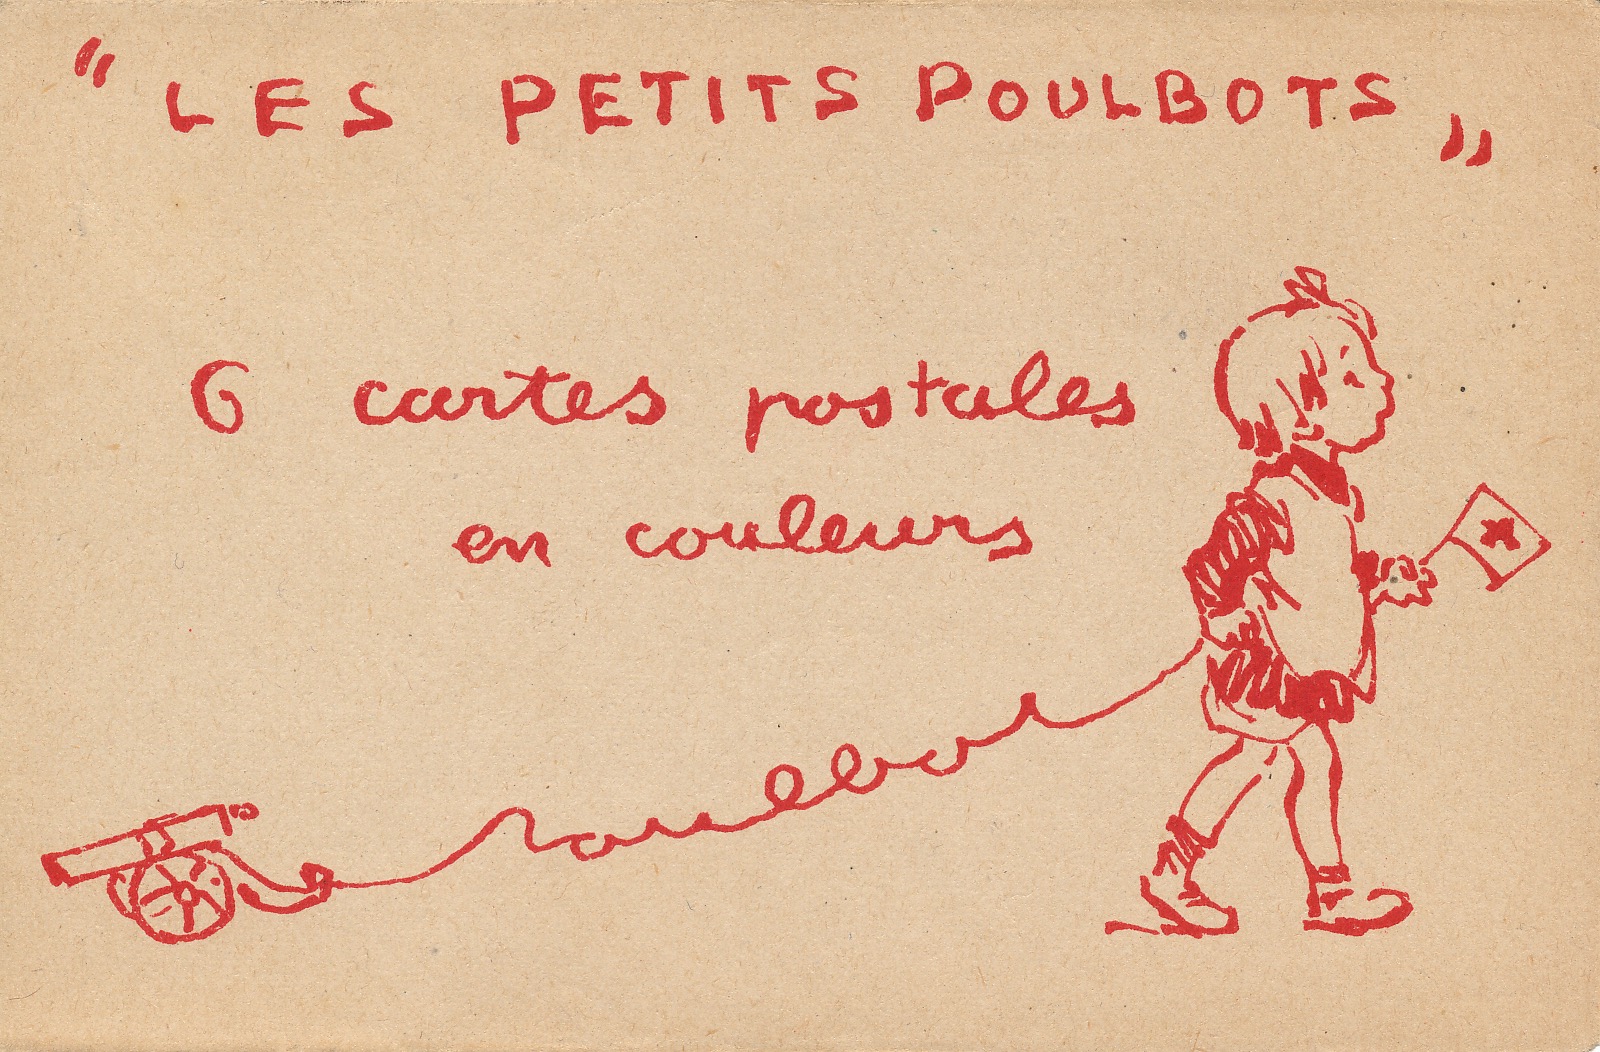 “LES PETITS POULBOTS„
6 cartes postales
en couleurs
Poulbot